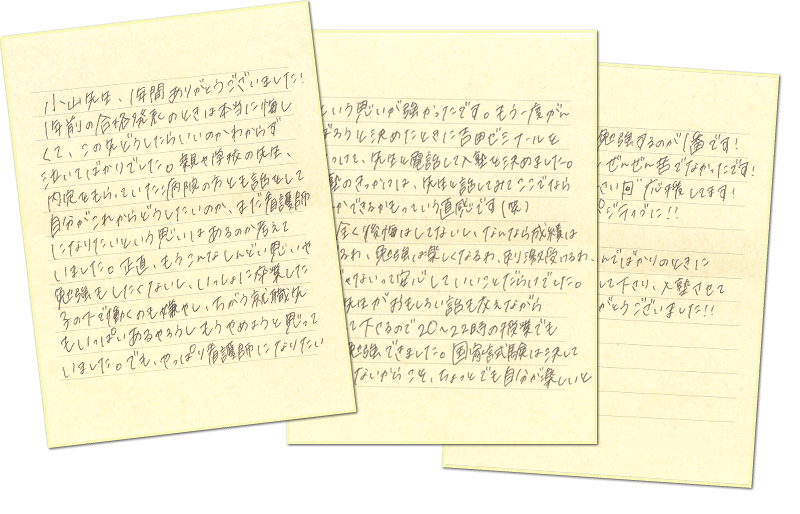 小山先生、1年間ありがとうございました！
1年前の合格発表のときは本当に悔し
くて、この先どうしたらいいのかわからず
泣いてばかりでした。親や学校の先生、
内定をもらっていた病院の方とも話をして
自分がこれからどうしたいのか、まだ看護師
になりたいという思いはあるのか考えて
いました。正直、もうこんなしんどい思いや
勉強もしたくないし、いっしょに卒業した
子の下で働くのも嫌やし、ちがう就職先
もいっぱいあるやろうしもうやめようと思って
いました。でも、やっぱり看護師になりたい
という思いが強かったです。もう一度がん
ばろうと決めたときに吉田ゼミナールを
つけて、先生と電話して入塾を決めました。
塾のきっかけは、先生と話してみてここでなら
かできるかもっていう直感です(笑)
全く後悔はしてないし、なんなら成績は
るわ、勉強は楽しくなるわ、刺激受けるわ、
じゃないって安心していいことだらけでした。
先生がおもしろい話も交えながら
て下さるので20〜22時の授業でも
勉強できました。国家試験は決して
ないからこそ、ちょっとでも自分が楽しいと
勉強するのが1番です！
ぜんぜん苦でなかったです！
さい 応援してます！
ポジティブに！！
んでばかりのときに
して下さり、入塾させて
がとうございました！！